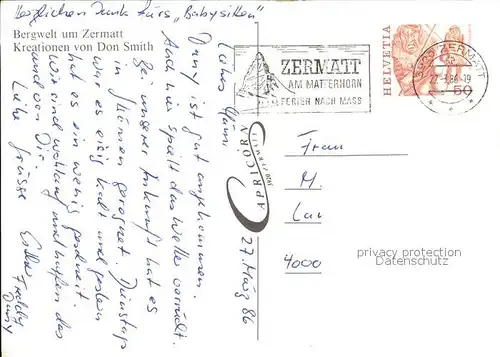 Herzlichen Dank fürs „Babysitten"
Bergwelt um Zermatt
Kreationen von Don Smith
27. März 86
Liebes
Dany ist gut angekommen.
Auch hier spielt das Wetter verrückt.
Bei unserer Ankunft hat es
in Strömen geregnet. Dienstags
war es eisig kalt und gestern
hat es ein wenig geschneit.
Wir sind wohlauf und hoffen das
auch von Dir.
Liebe Grüsse
Freddy
Dany
CAPRICORN
3920 ZERMATT
ZERMATT
AM MATTERHORN
FERIEN NACH MASS
HELVETIA
50
3920 ZERMATT
Frau
M.
4000
privacy protection
Datenschutz